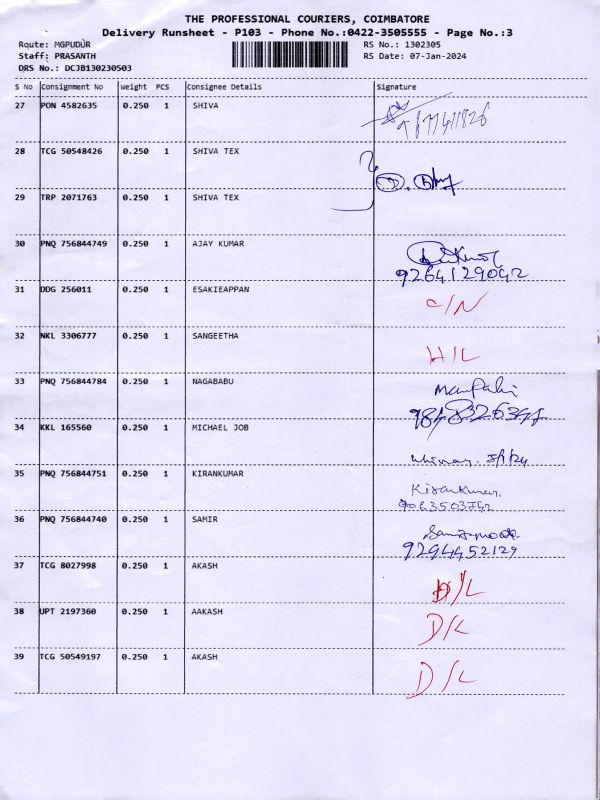 THE PROFESSIONAL COURIERS, COIMBATORE
Delivery Runsheet - P103 - Phone No.:0422-3505555 - Page No.:3
Route: MGPUDUR RS No.: 1302305
Staff: PRASANTH RS Date: 07-Jan-2024
DRS No.: DCJB130230503
S No Consignment No Weight PCS Consignee Details Signature
27 PON 4582635 0.250 1 SHIVA
28 TCG 50548426 0.250 1 SHIVA TEX
29 TRP 2071763 0.250 1 SHIVA TEX
30 PNQ 756844749 0.250 1 AJAY KUMAR
9264129042
31 DDG 256011 0.250 1 ESAKIEAPPAN
C/N
32 NKL 3306777 0.250 1 SANGEETHA
H/L
33 PNQ 756844784 0.250 1 NAGABABU
34 KKL 165560 0.250 1 MICHAEL JOB
35 PNQ 756844751 0.250 1 KIRANKUMAR
Kirankumar
9063503742
36 PNQ 756844740 0.250 1 SAMIR
9294452129
37 TCG 8027998 0.250 1 AKASH
D/L
38 UPT 2197360 0.250 1 AAKASH
D/L
39 TCG 50549197 0.250 1 AKASH
D/L